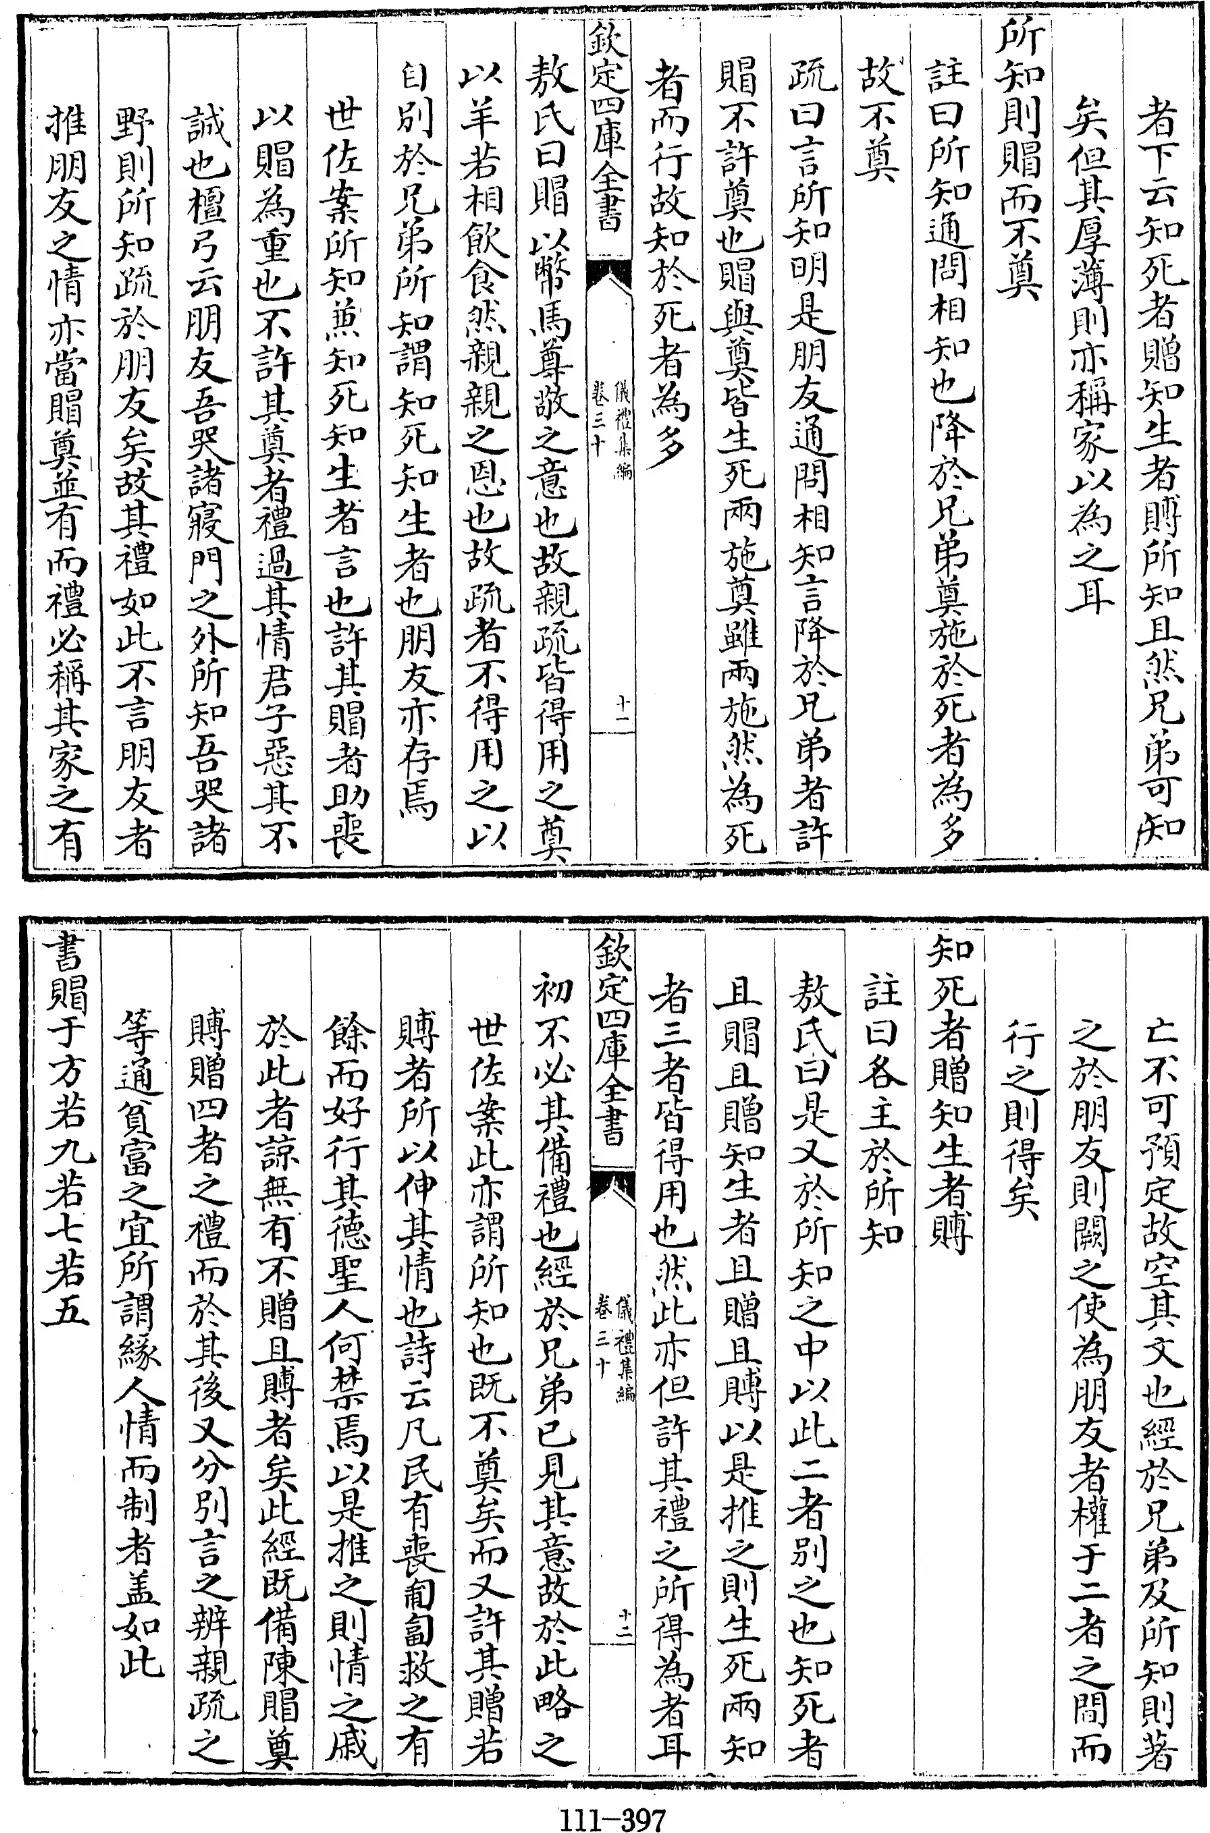 者下云知死者贈知生者賻所知且然兄弟可知
矣但其厚薄則亦稱家以為之耳
所知則賵而不奠
註曰所知通問相知也降於兄弟奠施於死者為多
故不奠
疏曰言所知明是朋友通問相知言降於兄弟者許
賵不許奠也賵與奠皆生死兩施奠雖兩施然為死
者而行故知於死者為多
欽定四庫全書
儀禮集編
卷三十
十一
敖氏曰賵以幣馬尊敬之意也故親疏皆得用之奠
以羊若相飲食然親親之恩也故疏者不得用之以
自別於兄弟所知謂知死知生者也朋友亦存焉
世佐案所知兼知死知生者言也許其賵者助喪
以賵為重也不許其奠者禮過其情君子惡其不
誠也檀弓云朋友吾哭諸寢門之外所知吾哭諸
野則所知疏於朋友矣故其禮如此不言朋友者
推朋友之情亦當賵奠並有而禮必稱其家之有
亡不可預定故空其文也經於兄弟及所知則著
之於朋友則闕之使為朋友者權于二者之間而
行之則得矣
知死者贈知生者賻
註曰各主於所知
敖氏曰是又於所知之中以此二者別之也知死者
且賵且贈知生者且贈且賻以是推之則生死兩知
者三者皆得用也然此亦但許其禮之所得為者耳
欽定四庫全書
儀禮集編
卷三十
十二
初不必其備禮也經於兄弟已見其意故於此略之
世佐案此亦謂所知也既不奠矣而又許其贈若
賻者所以伸其情也詩云凡民有喪匍匐救之有
餘而好行其德聖人何禁焉以是推之則情之戚
於此者諒無有不贈且賻者矣此經既備陳賵奠
賻贈四者之禮而於其後又分別言之辨親疏之
等通貧富之宜所謂緣人情而制者盖如此
書賵于方若九若七若五
111-397